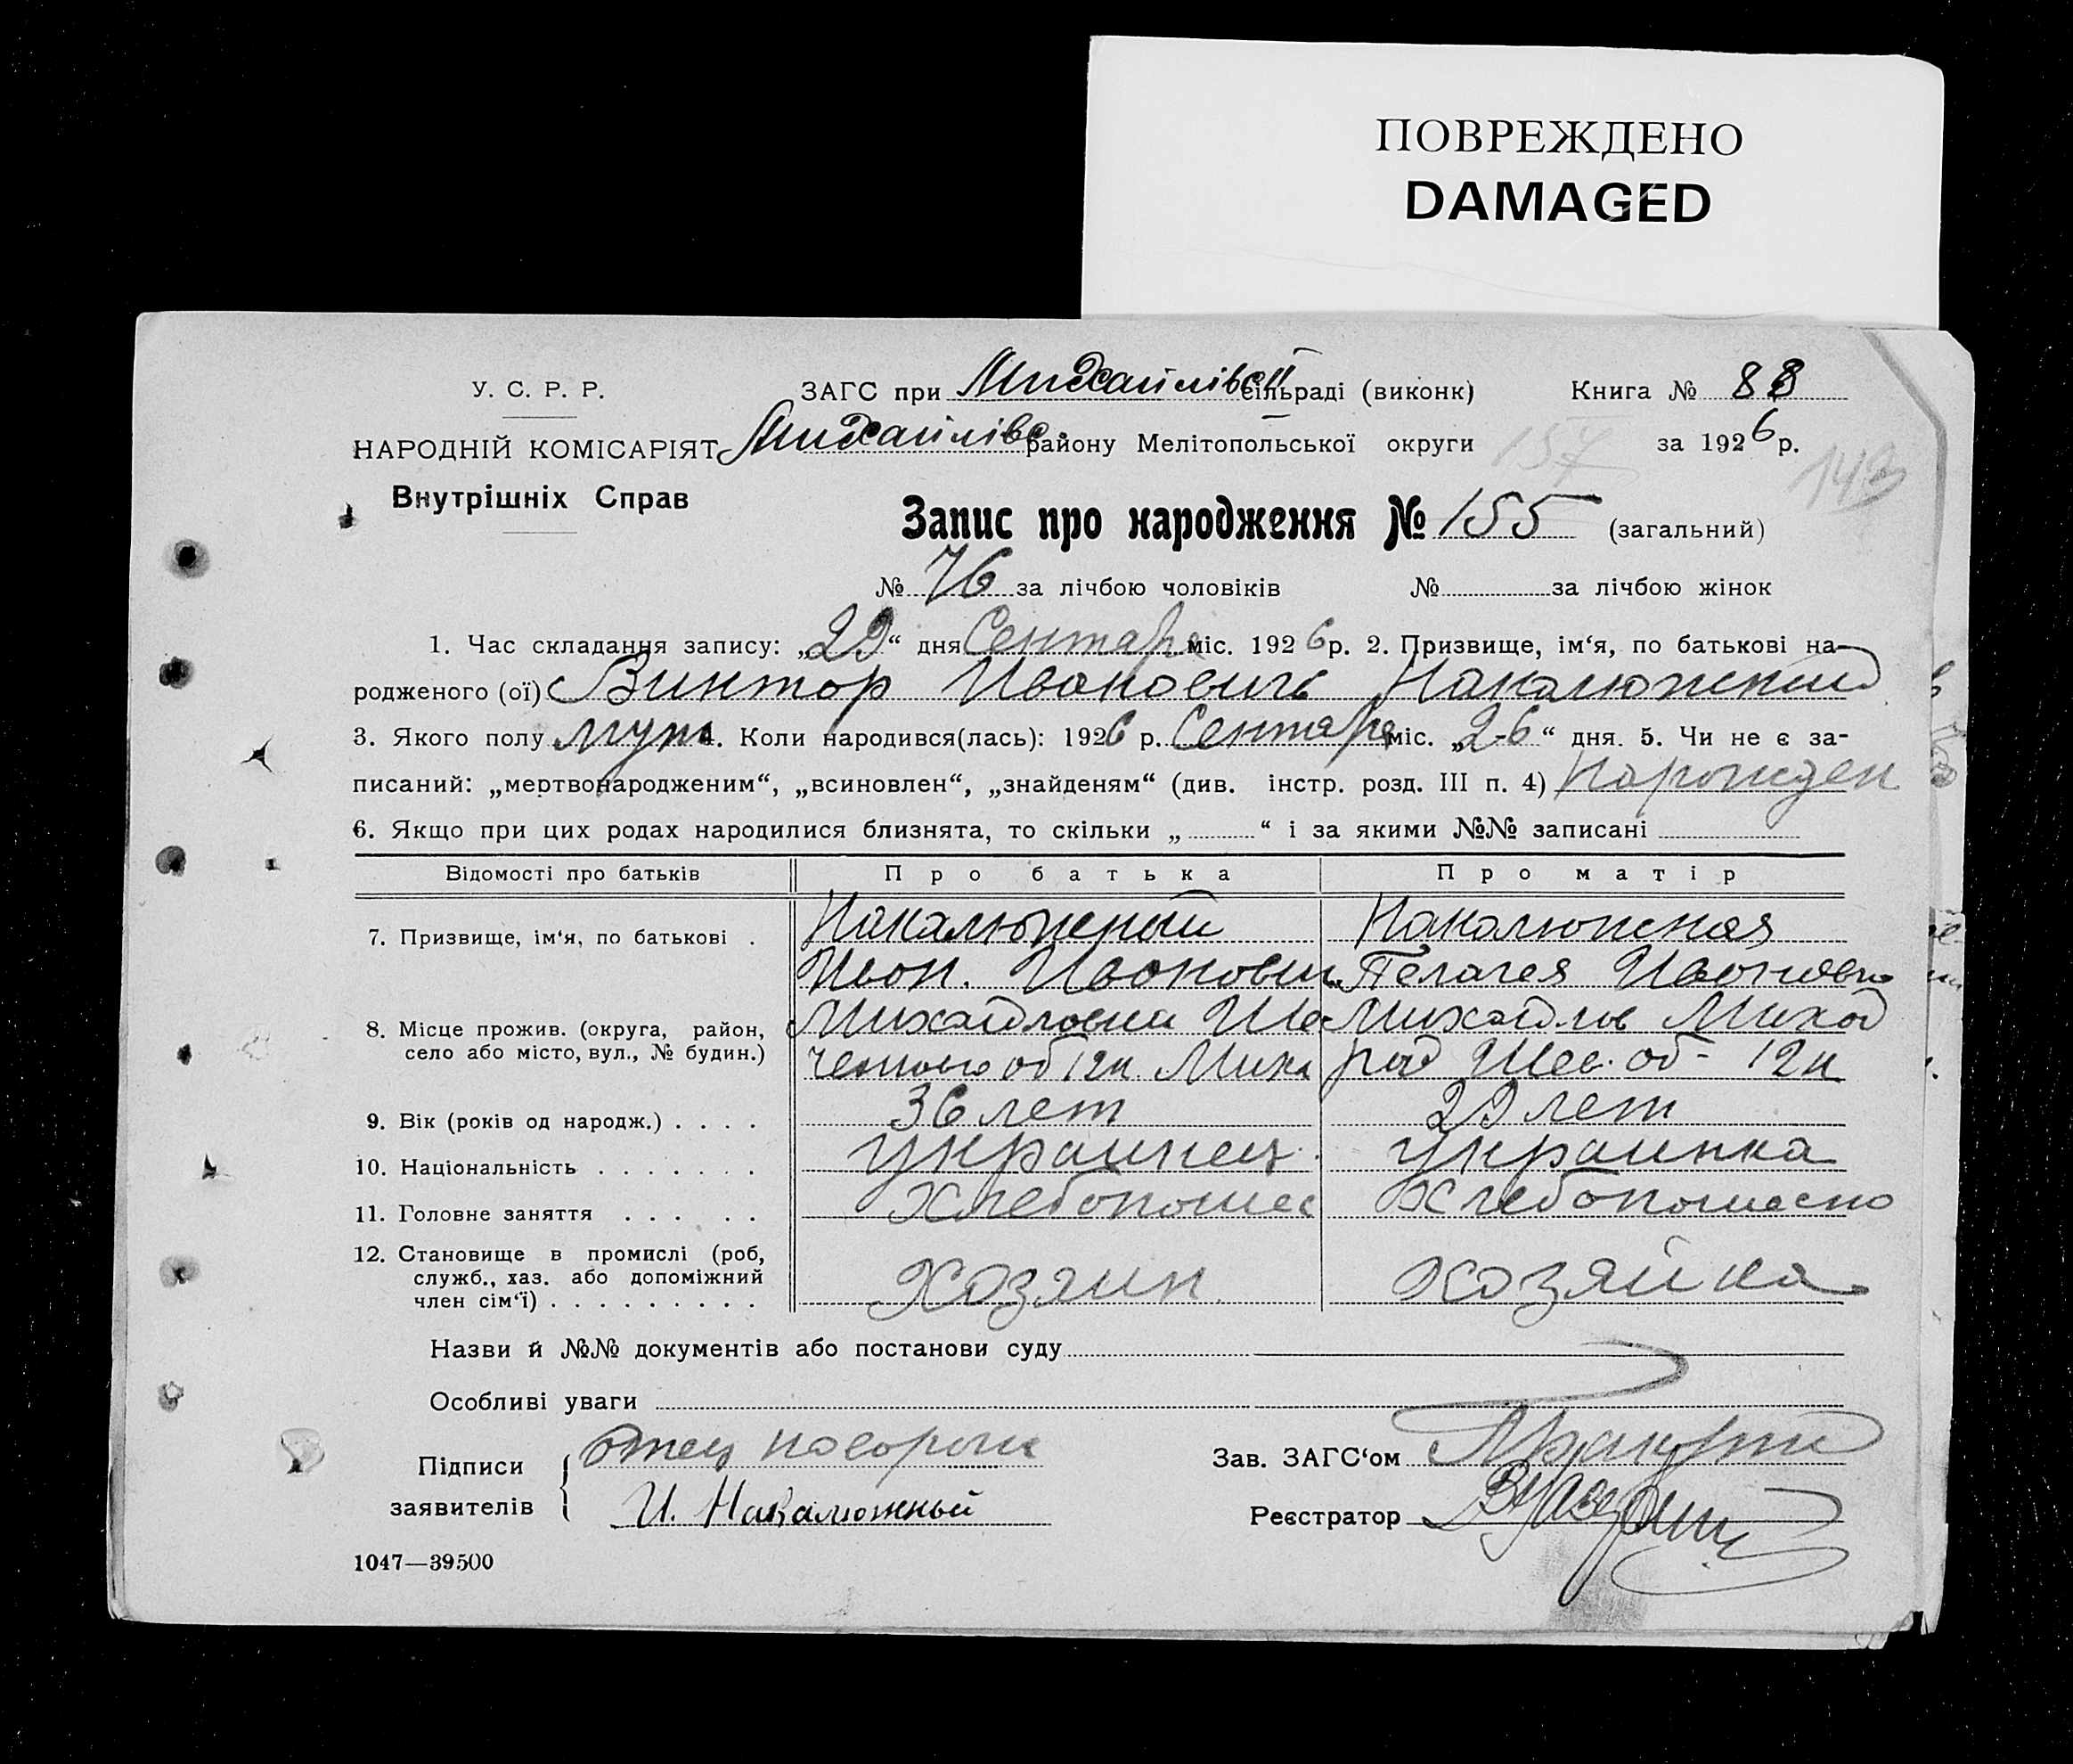 ПОВРЕЖДЕНО
DAMAGED
У. С. Р. Р.
ЗАГС при Михайлівсй сільраді (виконк) Книга № 88
НАРОДНІЙ КОМІСАРІЯТ Михайлівс. району Мелітопольської округи 157 за 1926 р.
Внутрішніх Справ
Запис про народження № 155 (загальний)
№ 76 за лічбою чоловіків № за лічбою жінок
1. Час складання запису: „29“ дня Сентабра міс. 1926 р. 2. Призвище, ім‘я, по батькові на-
родженого (ої) Виктор Иванович Накалюжный
3. Якого полу муж 4. Коли народився(лась): 1926 р. Сентабра міс. „26“ дня. 5. Чи не є за-
писаний: „мертвонародженим“, „всиновлен“, „знайденям“ (див. інстр. розд. III п. 4) Нарожден
6. Якщо при цих родах народилися близнята, то скільки „ “ і за якими №№ записані
Відомості про батьків Про батька Про матір
7. Призвище, ім‘я, по батькові . Накалюжный Накалюжная
Иван. Иванович Пелагея Ивановна
8. Місце прожив. (округа, район, Михайловки Михайлов
село або місто, вул., № будин.) об 12н Миха рад Шев. об - 12н
9. Вік (років од народж.) . . . . 36 лет 29 лет
10. Національність . . . . . . . украинец. украинка
11. Головне заняття . . . . . Хлебопошес Хлебопошество
12. Становище в промислі (роб, служб., хаз. або допоміжний член сім‘ї) . . . . . . . . . Хозяин. хозяйка
Назви й №№ документів або постанови суду
Особливі уваги
Підписи заявителів отец
И. Накалюжный
Зав. ЗАГС‘ом
Реєстратор
1047—39500